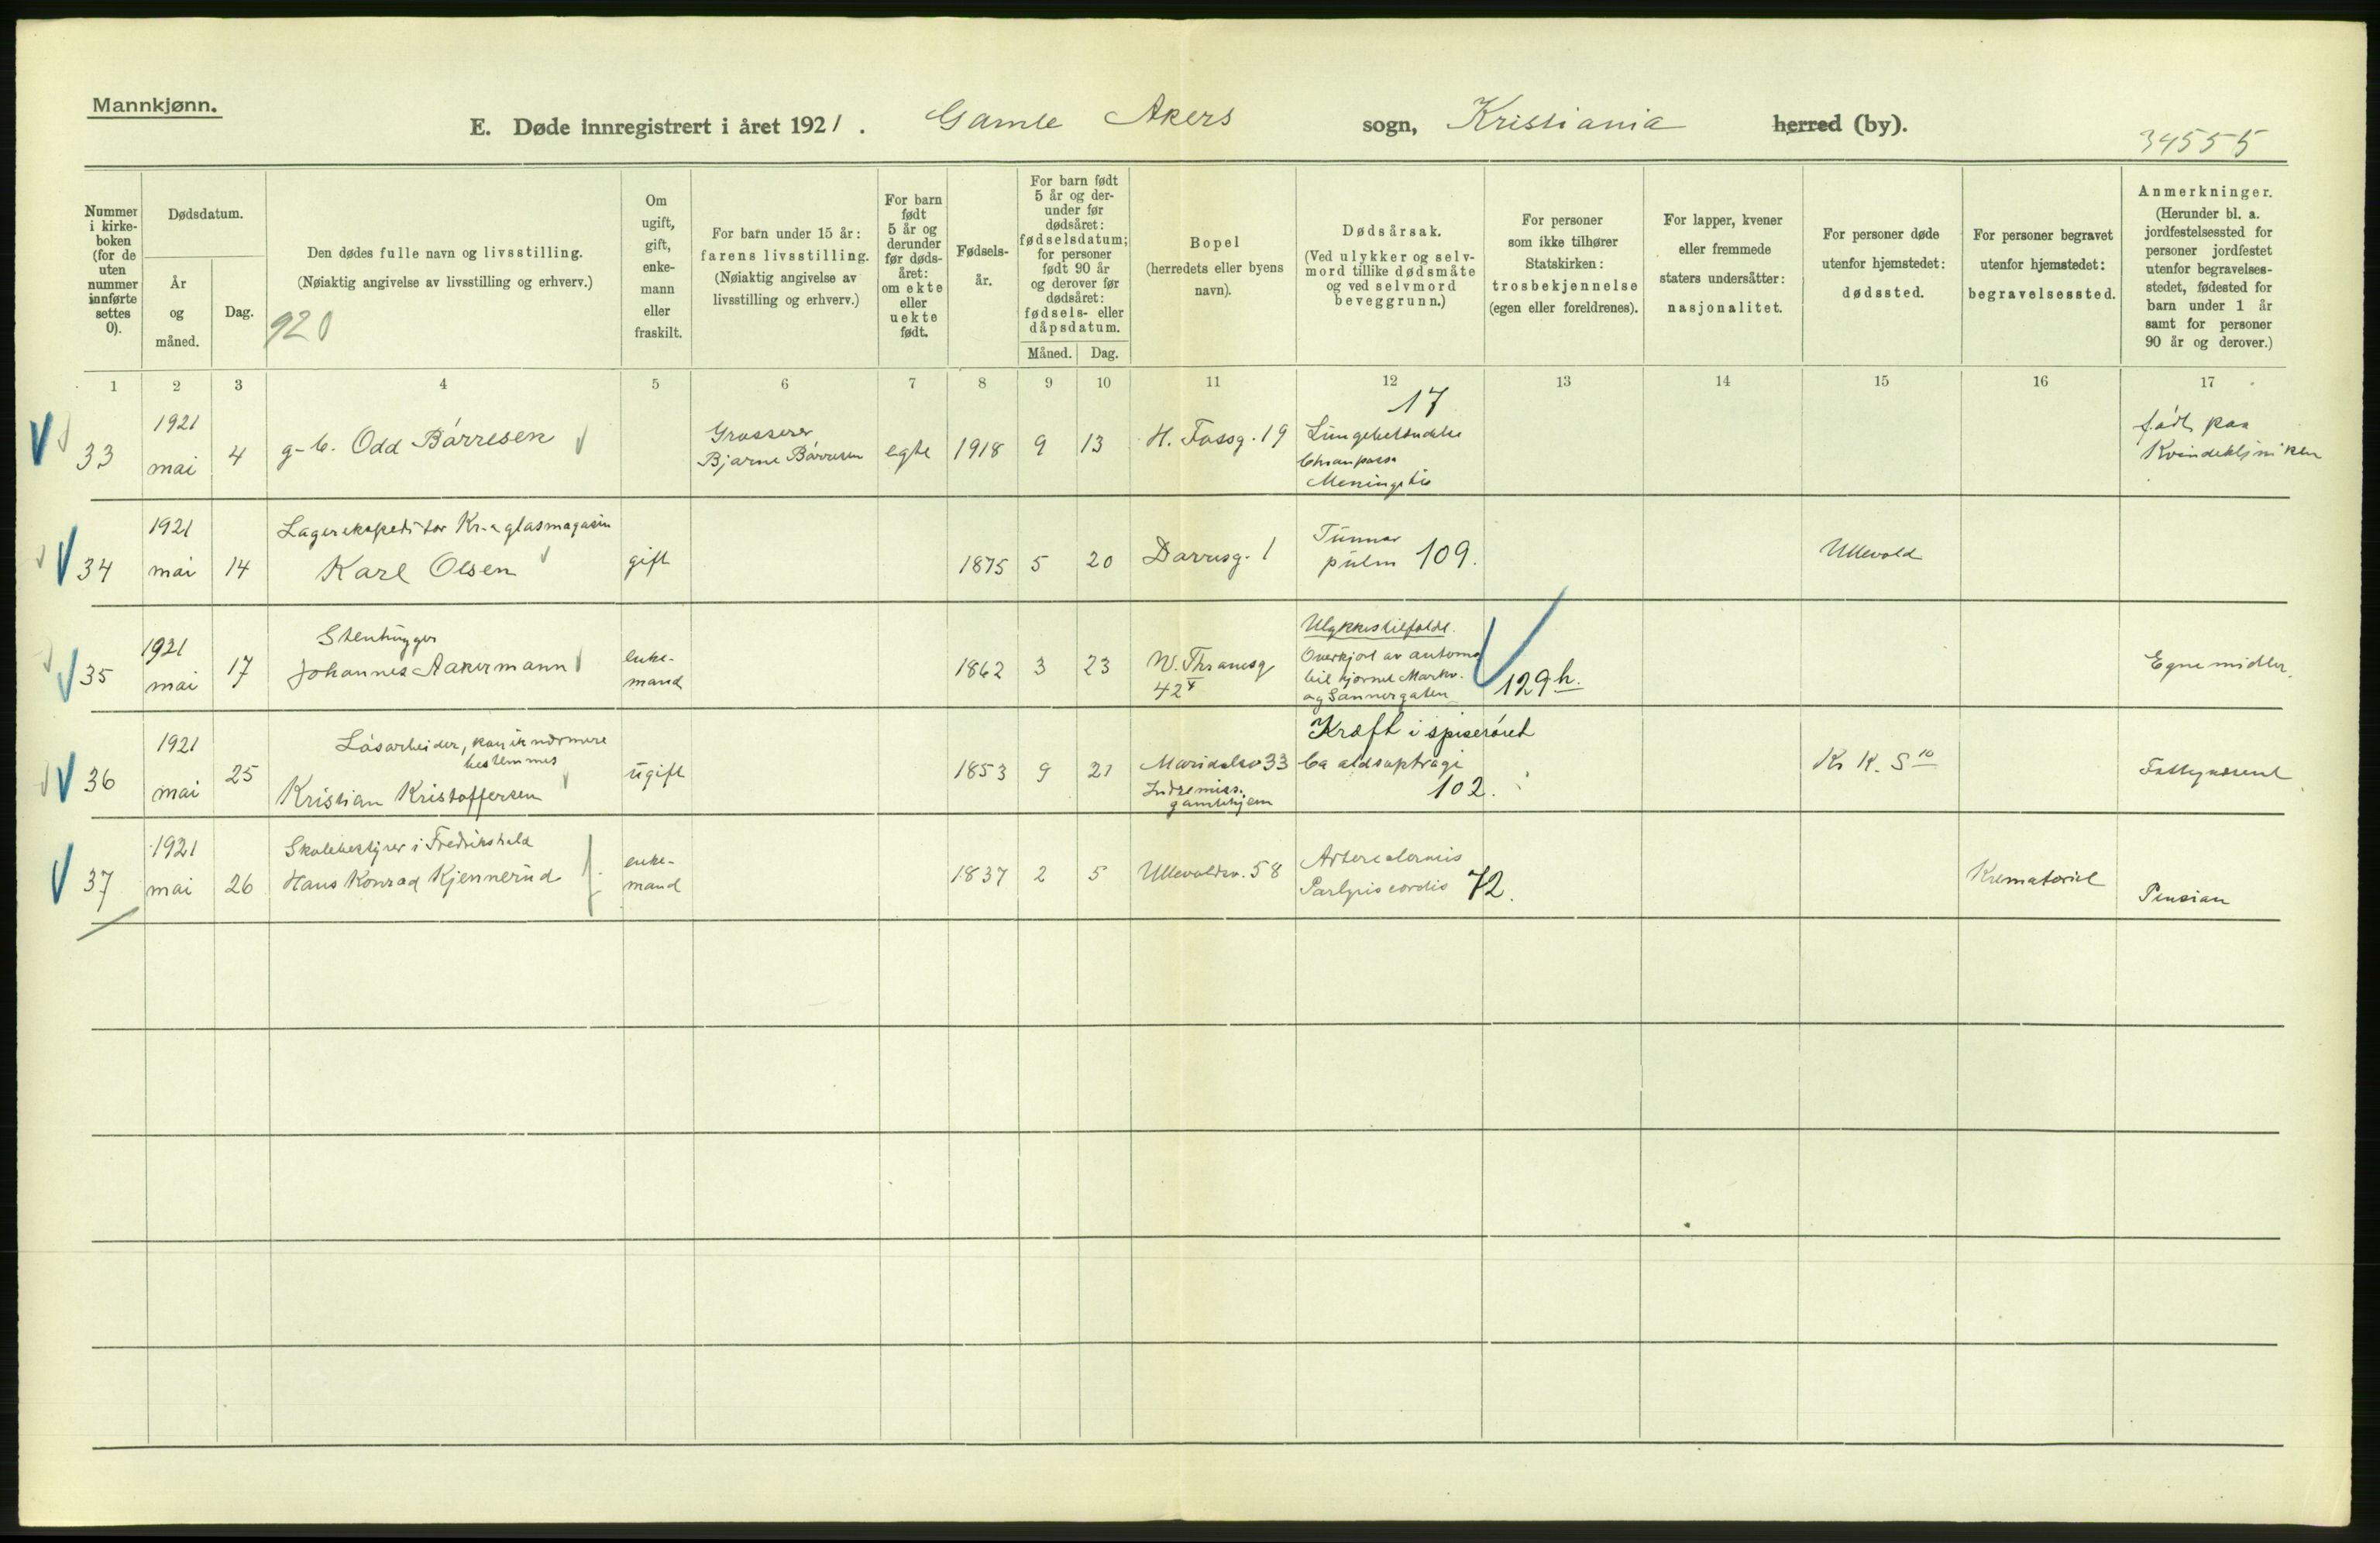 Mannkjønn.
E. Døde innregistrert i året 1921. Gamle Akers sogn, Kristiania herred (by).
34555
Nummer i kirke-boken (for de uten nummer innførte settes 0).
Dødsdatum.
År og måned.
Dag.
Den dødes fulle navn og livsstilling.
(Nøiaktig angivelse av livsstilling og erhverv.)
920
Om ugift, gift, enke-mann eller fraskilt.
For barn under 15 år: farens livsstilling.
(Nøiaktig angivelse av livsstilling og erhverv.)
For barn født 5 år og derunder før døds-året: om ekte eller uekte født.
Fødsels-år.
For barn født 5 år og der-under før dødsåret: fødselsdatum; for personer født 90 år og derover før dødsåret: fødsels- eller dåpsdatum.
Måned. Dag.
Bopel
(herredets eller byens navn).
Dødsårsak.
(Ved ulykker og selv-mord tillike dødsmåte og ved selvmord beveggrunn.)
For personer som ikke tilhører Statskirken: trosbekjennelse (egen eller foreldrenes).
For lapper, kvener eller fremmede staters undersåtter: nasjonalitet.
For personer døde utenfor hjemstedet: dødssted.
For personer begravet utenfor hjemstedet: begravelsessted.
Anmerkninger.
(Herunder bl. a. jordfestelsessted for personer jordfestet utenfor begravelses-stedet, fødested for barn under 1 år samt for personer 90 år og derover.)
1 2 3 4 5 6 7 8 9 10 11 12 13 14 15 16 17
33 1921 mai 4 g-b. Odd Børresen Grosserer Bjarne Børresen egte 1918 9 13 H. Fossg. 19 17 Lungebetændelse Meningitis født paa Kvindekliniken
34 1921 mai 14 Lagerekspeditor Kr.a glasmagasin Karl Olsen gift 1875 5 20 Darresg. 1 Tumor pulm 109. Ullevold
35 1921 mai 17 Stenhugger Johannes Aakermann enke-mand 1862 3 23 W. Thranesg 42 Ulykkestilfælde. Overkjørt av automobil hjørnet Markv. og Sannergaten 129 h. Egne midler.
36 1921 mai 25 Løsarbeider, kan ei nærmere bestemmes Kristian Kristoffersen ugift 1853 9 21 Maridalsv 33 Indremiss. gamlehjem Kræft i spiserøret Ca øsophagi 102. Kr K. S Fattigunderst
37 1921 mai 26 Skolebestyrer i Fredrikshald Hans Konrad Kjennerud enke-mand 1837 2 5 Ullevoldsv. 58 Paralysis cordis 72. Krematoriet Pension